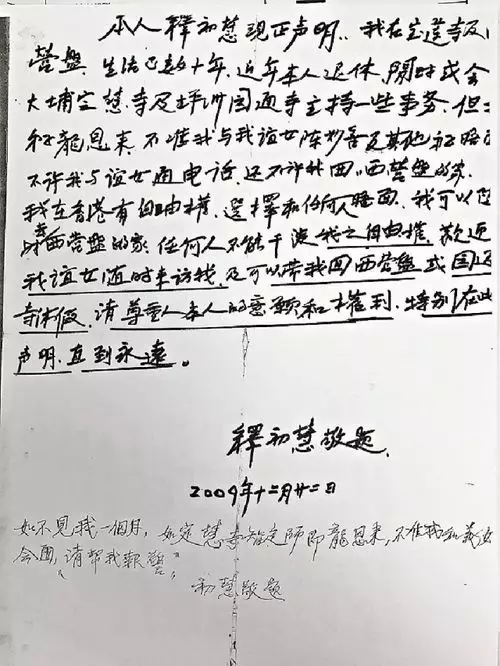 本人釋初慧現正声明..我在宝蓮寺及
营盘 生活已数十年.近年本人退休.閑時或会
大埔定慧寺及坪洲园通寺主持一些事务.但
龍恩来 不准我与我谊女陈妙善及其他
不许我与谊女通电话.还不许我回西营盘的家.
我在香港有自由權.選擇和任何人晤面.我可以
西营盘的家.任何人不能干涉我之自由權.歡迎
我谊女随时来访我.及可以带我回西营盘或园通
寺休假.请尊重人本人的意願和權利.特别在此
声明.直到永遠。
釋初慧敬題.
2009年十二月廿二日
如不見我一個月.如定慧寺智定師即龍恩来,不准我和義女
会面,"請帮我報警",
初慧敬題